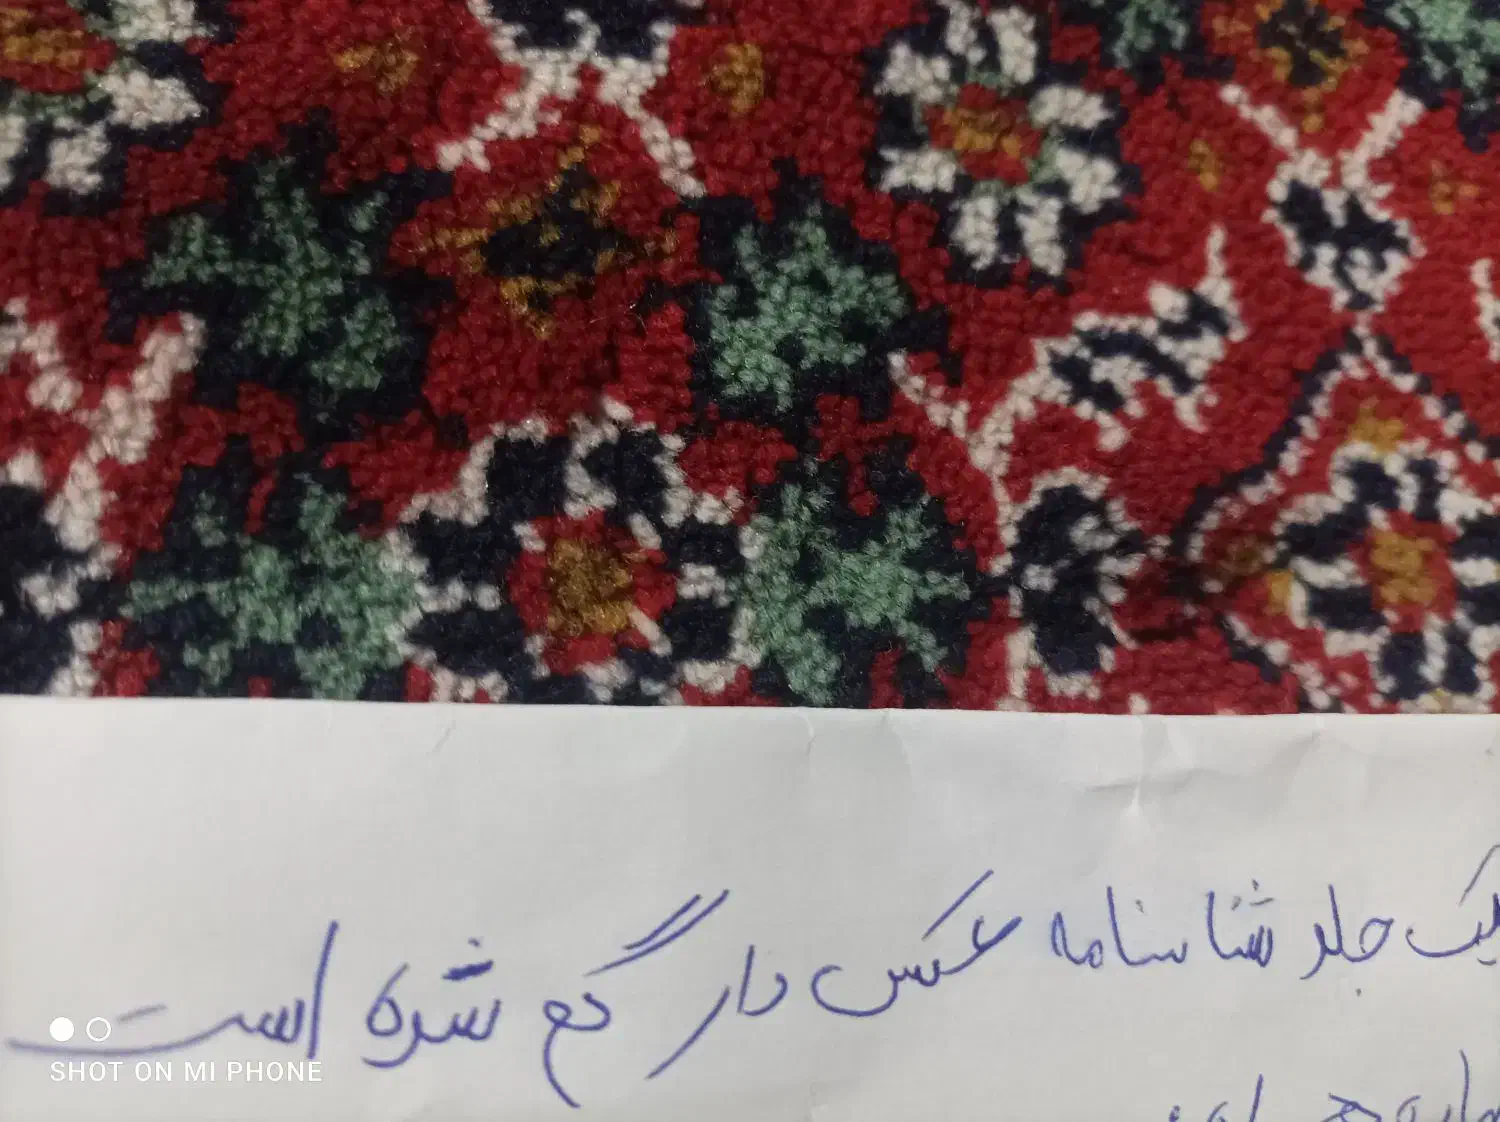 یک جلد شناسنامه عکس دار گم شده است
SHOT ON MI PHONE